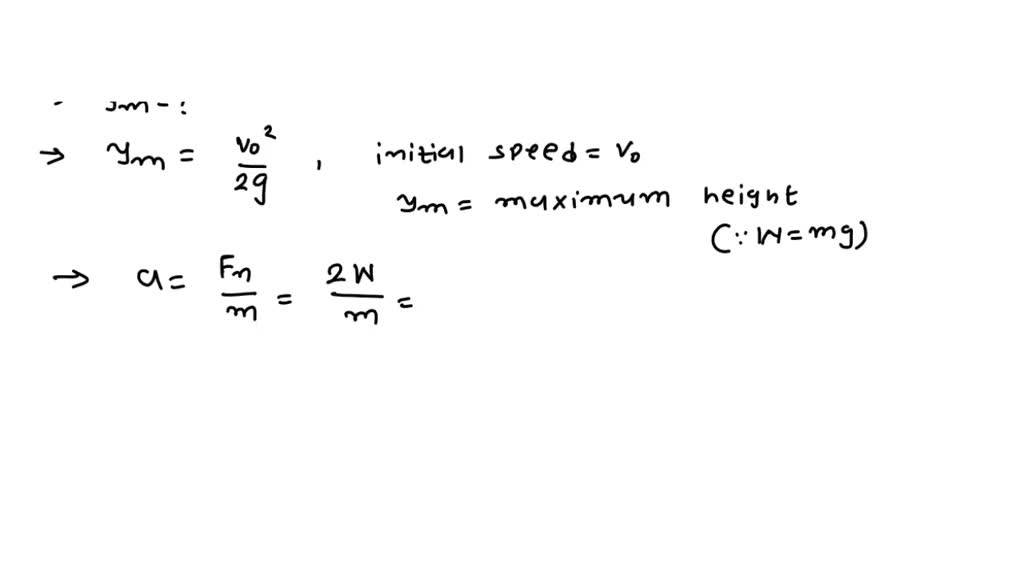 → ym = v₀²/2g , initial speed = v₀
ym = maximum height
(∵ W = mg)
→ a = Fn/m = 2W/m =